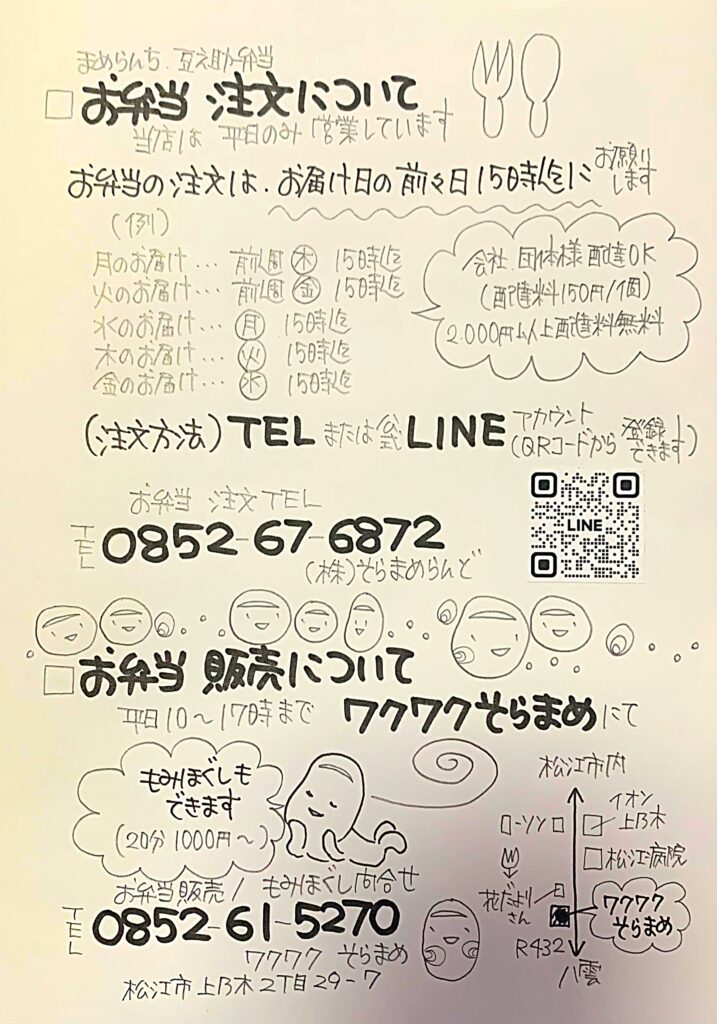 まめらんち、豆之助弁当
お弁当 注文について
当店は 平日のみ 営業しています
お弁当の注文は、お届け日の前々日15時迄に お願いします
(例)
月のお届け… 前週㊍ 15時迄
火のお届け… 前週㊎ 15時迄
水のお届け… ㊊ 15時迄
木のお届け… ㊋ 15時迄
金のお届け… ㊌ 15時迄
会社、団体様 配達OK
(配達料150円/1個)
2.000円以上配達料無料
(注文方法) TEL または 公式 LINE アカウント
(QRコードから 登録できます)
お弁当 注文TEL
TEL 0852-67-6872
(株)そらまめらんど
LINE
お弁当 販売について
平日10～17時まで ワクワクそらまめにて
もみほぐしも
できます
(20分1000円～)
お弁当販売/もみほぐし問合せ
TEL 0852-61-5270
ワクワク そらまめ
松江市上乃木2丁目29-7
松江市内
ローソン
イオン
上乃木
松江病院
花だより
さん
ワクワク
そらまめ
R432
八雲